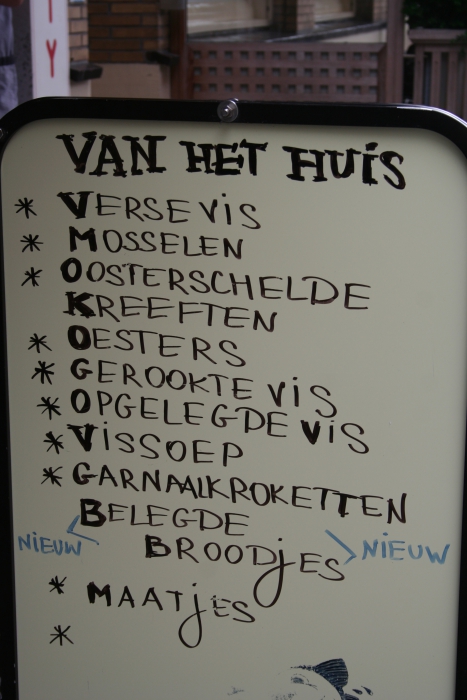 TY
VAN HET HUIS
* VERSE VIS
* MOSSELEN
* OOSTERSCHELDE
KREEFTEN
* OESTERS
* GEROOKTE VIS
* OPGELEGDE VIS
* VISSOEP
* GARNAALKROKETTEN
BELEGDE
NIEUW BROODJES NIEUW
* MAATJES
*